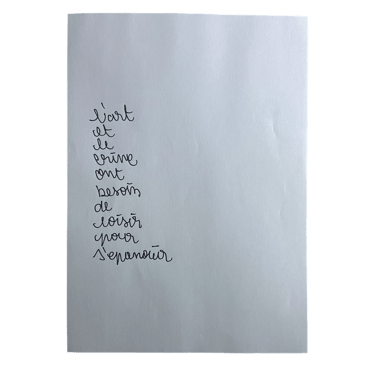 L'art
et
le
crime
ont
besoin
de
loisir
pour
s'epanouir